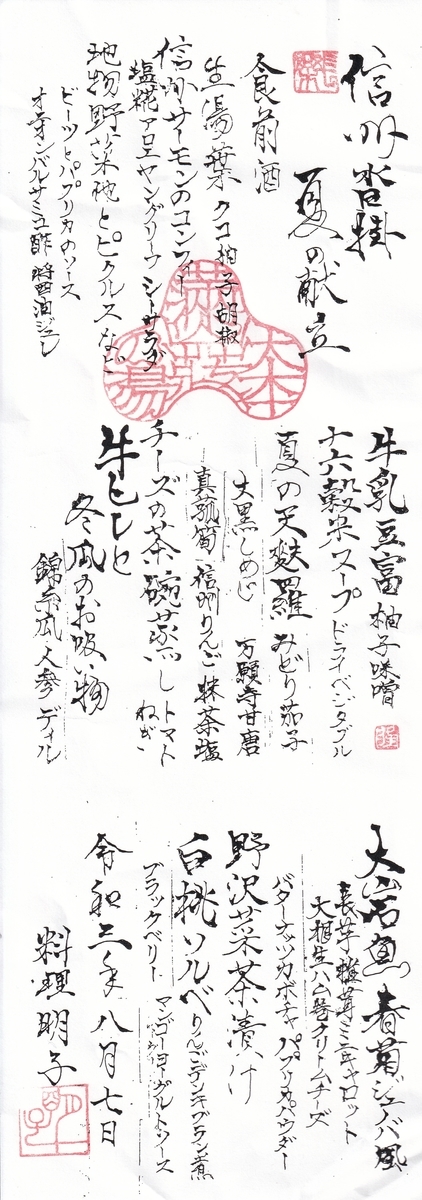 信州沓掛
夏の献立
食前酒
生湯葉 クコ 柚子胡椒
信州サーモンのコンフィ
塩糀 アロエ ヤングリーフ シーザーサラダ
地物野菜 とピクルスなど
ビーツとパプリカのソース
オニオンバルサミコ酢 醤油ジュレ
牛乳豆富 柚子味噌
十六穀米スープ ドライベジタブル
夏の天麩羅 みどり茄子
大黒しめじ 万願寺甘唐
真菰筍 信州りんご 抹茶塩
チーズの茶碗蒸し トマト
ねぎ
牛ヒレと
冬瓜のお吸い物
錦糸瓜 人参 ディル
大岩魚 春菊ジェノバ風
長芋 椎茸 ミニキャロット
大根生ハム巻 クリームチーズ
バターナッツカボチャ パプリカパウダー
野沢菜茶漬け
白桃ソルベ りんごデンキブラン煮
ブラックベリー マンゴーヨーグルトソース
令和三年八月七日
料理 明子